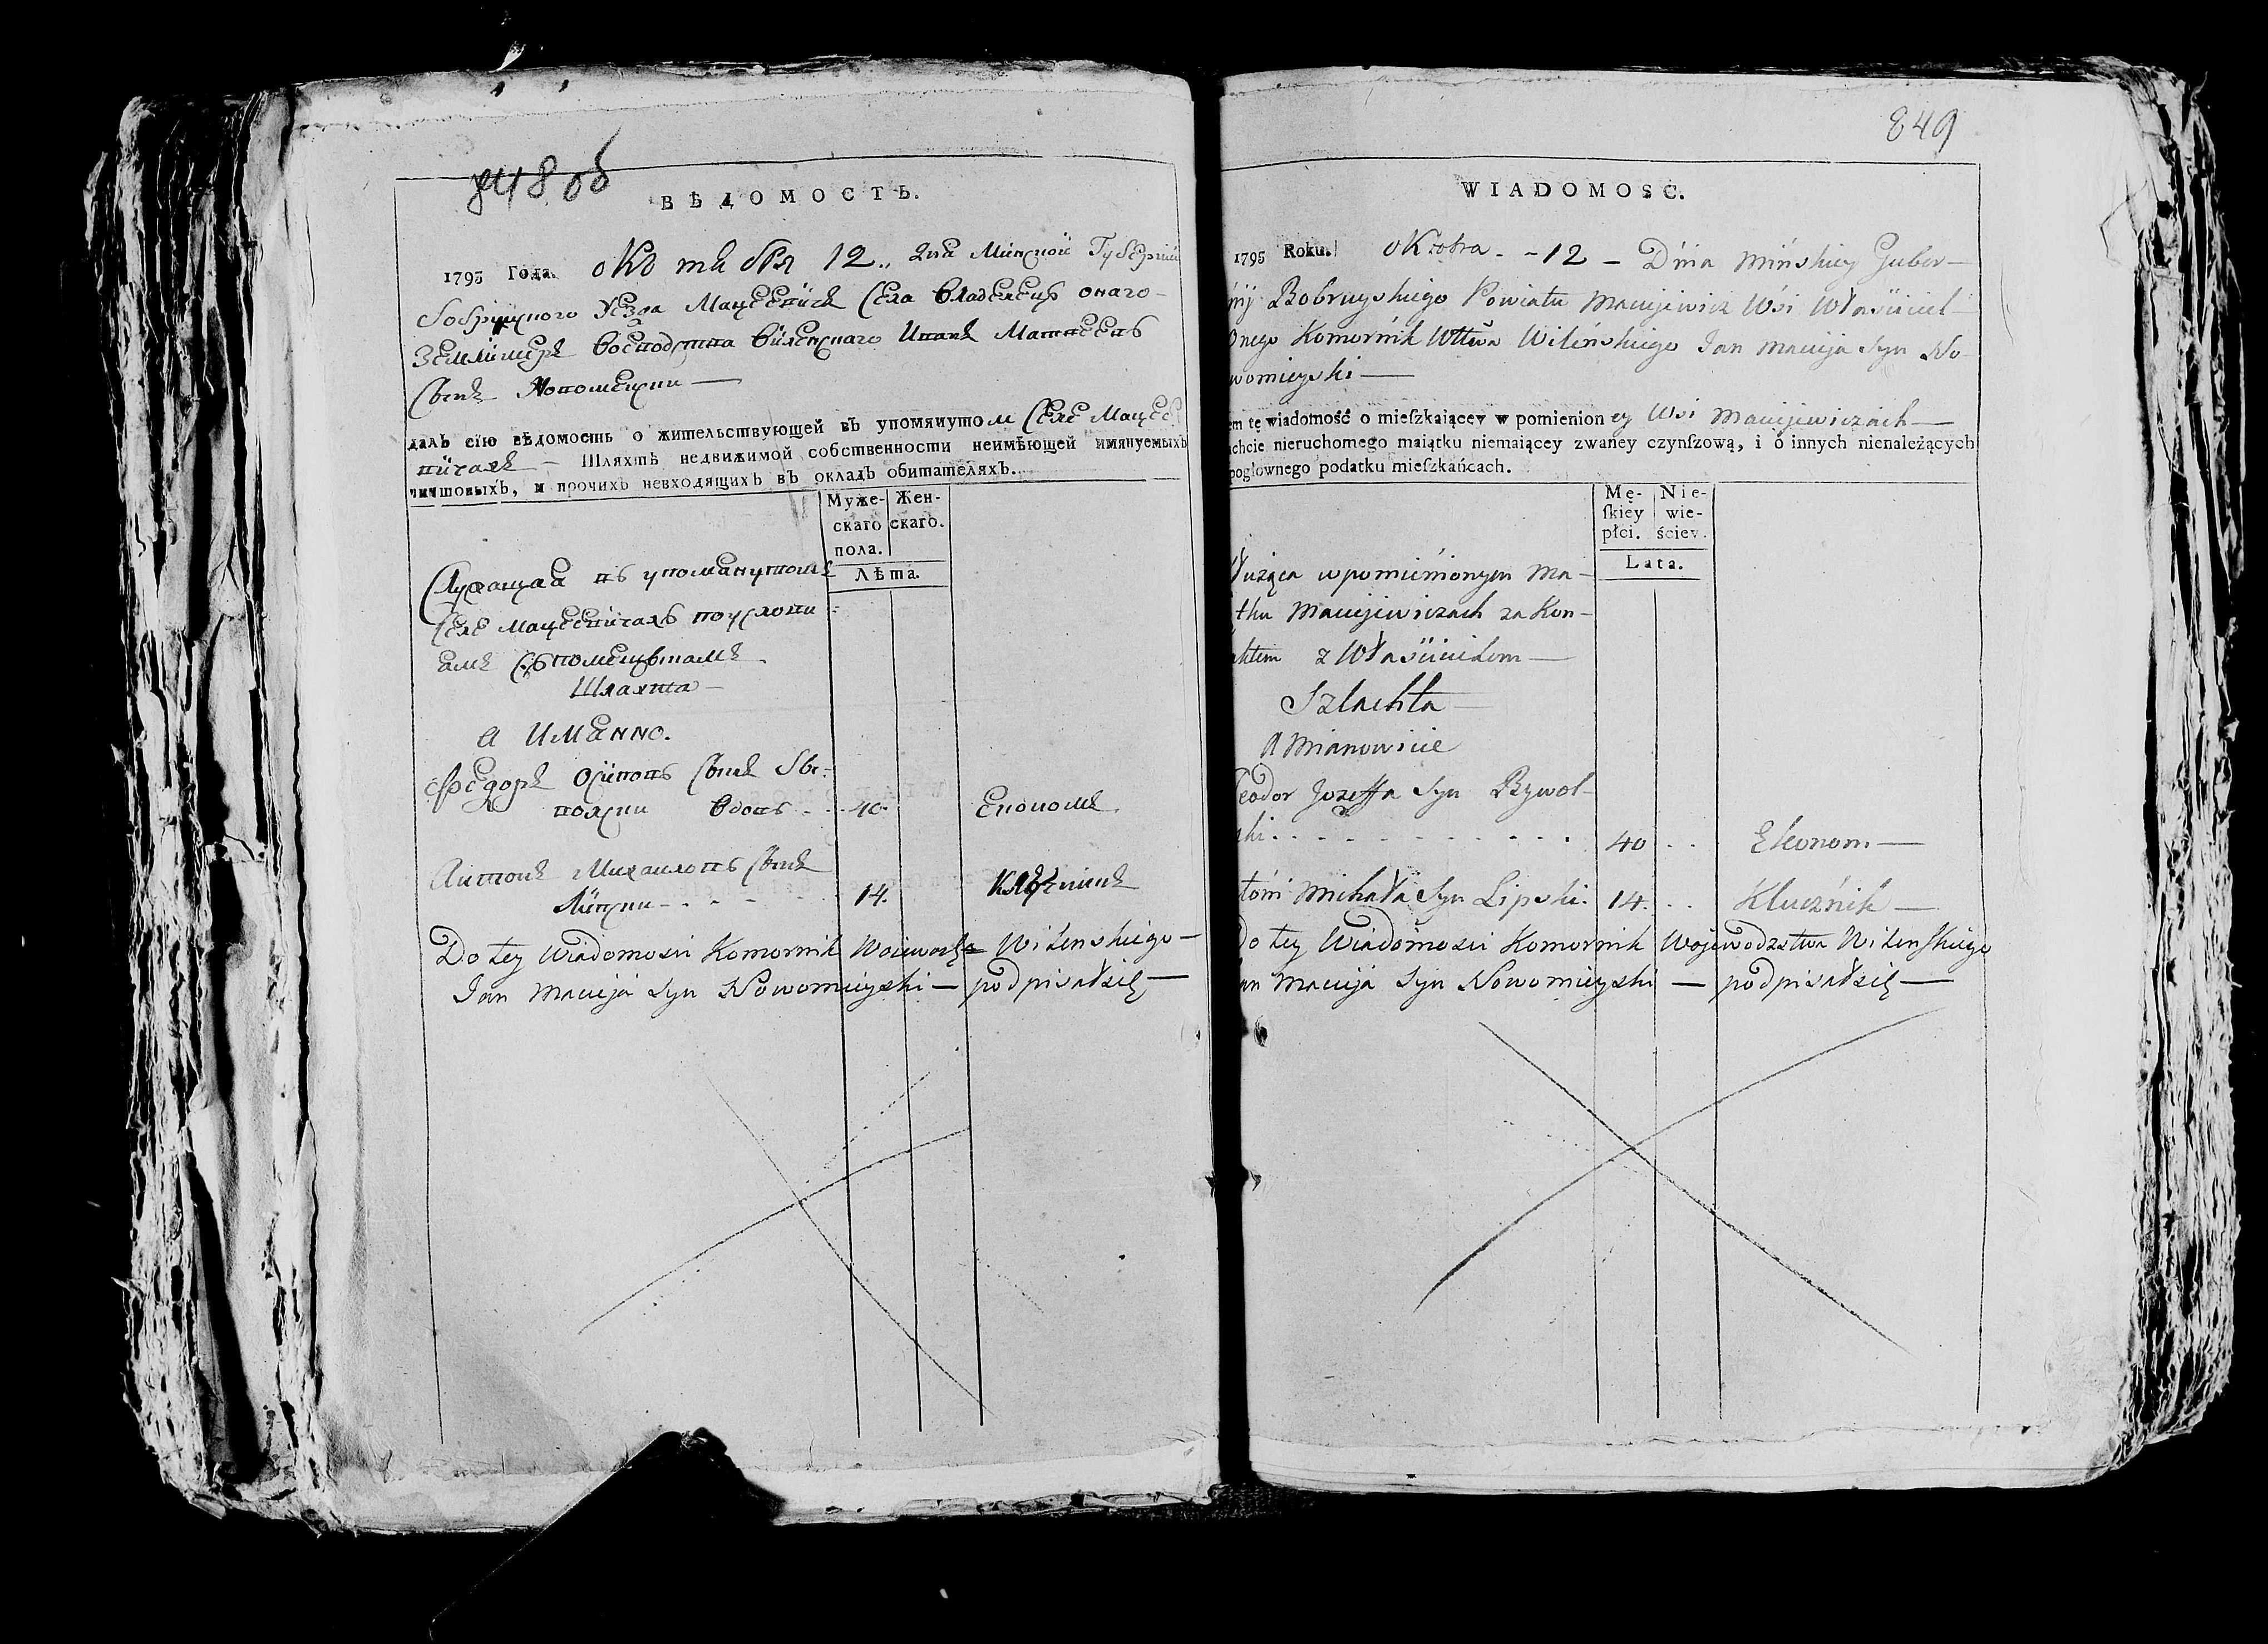 848 об
ВѢДОМОСТЬ.
1795 Года. октября 12.. дня Минской Губернїи
Бобруйского Уезда Мацеевичъ Села владелецъ онаго
Землимеръ Воеводства Виленскаго Иванъ Матвеевъ
Сынъ Новомейски —
далъ сїю вѣдомость о жительствующей въ упомянутом Селе Мацее
вичахъ — Шляхтѣ недвижимой собственности неимѣющей имянуемыхъ
чиншовыхъ, и прочихъ невходящихъ въ окладъ обитателяхъ.
Муже- Жен-
скаго скаго.
пола.
Лѣта.
Служащая въ упомянутомъ
Селе Мацеевичахъ по услови
амъ съ помещикомъ
Шляхта —
а Имянно.
Федоръ Осиповъ Сынъ Бы-
вольски вдовъ - - 40. Економъ
Антонъ Михаиловъ Сынъ
Липски - - - - 14. Ключникъ
Do tey Wiadomosci Komornik Wojewodz Wilenskiego —
Jan Macieja Syn Nowomieyski — podpisałsię —
849
WIADOMOSC.
1795 Roku. oktobra - - 12 — Dnia Mińskiey Guber—
nij Bobruyskiego Powiatu Maciejewicz Wsi Właściciel—
Onego Komornik Wttwa Wileńskiego Jan Macieja Syn No-
womieyski —
em tę wiadomość o mieſzkaiącey w pomienion ey Wsi Maciejewiczach —
chcie nieruchomego maiątku niemaiącey zwaney czynſzową, i o innych nienależących
pogłownego podatku mieſzkańcach.
Mę- Nie-
ſkiey wie-
płci. ściey.
Lata.
łużąca w pomienionym Ma—
tku Maciejewiczach za Kon—
aktem z Właścicielem —
Szlachta —
A Mianowicie
Teodor Jozeffa Syn Bywol—
ski - - - - - - 40 - - Ekonom. —
toni Michała Syn Lipski. 14. - - Klucznik —
Do tey Wiadomosci Komornik Wojewodztwa Wilenskiego
an Macieja Syn Nowomieyski — podpisałsię —